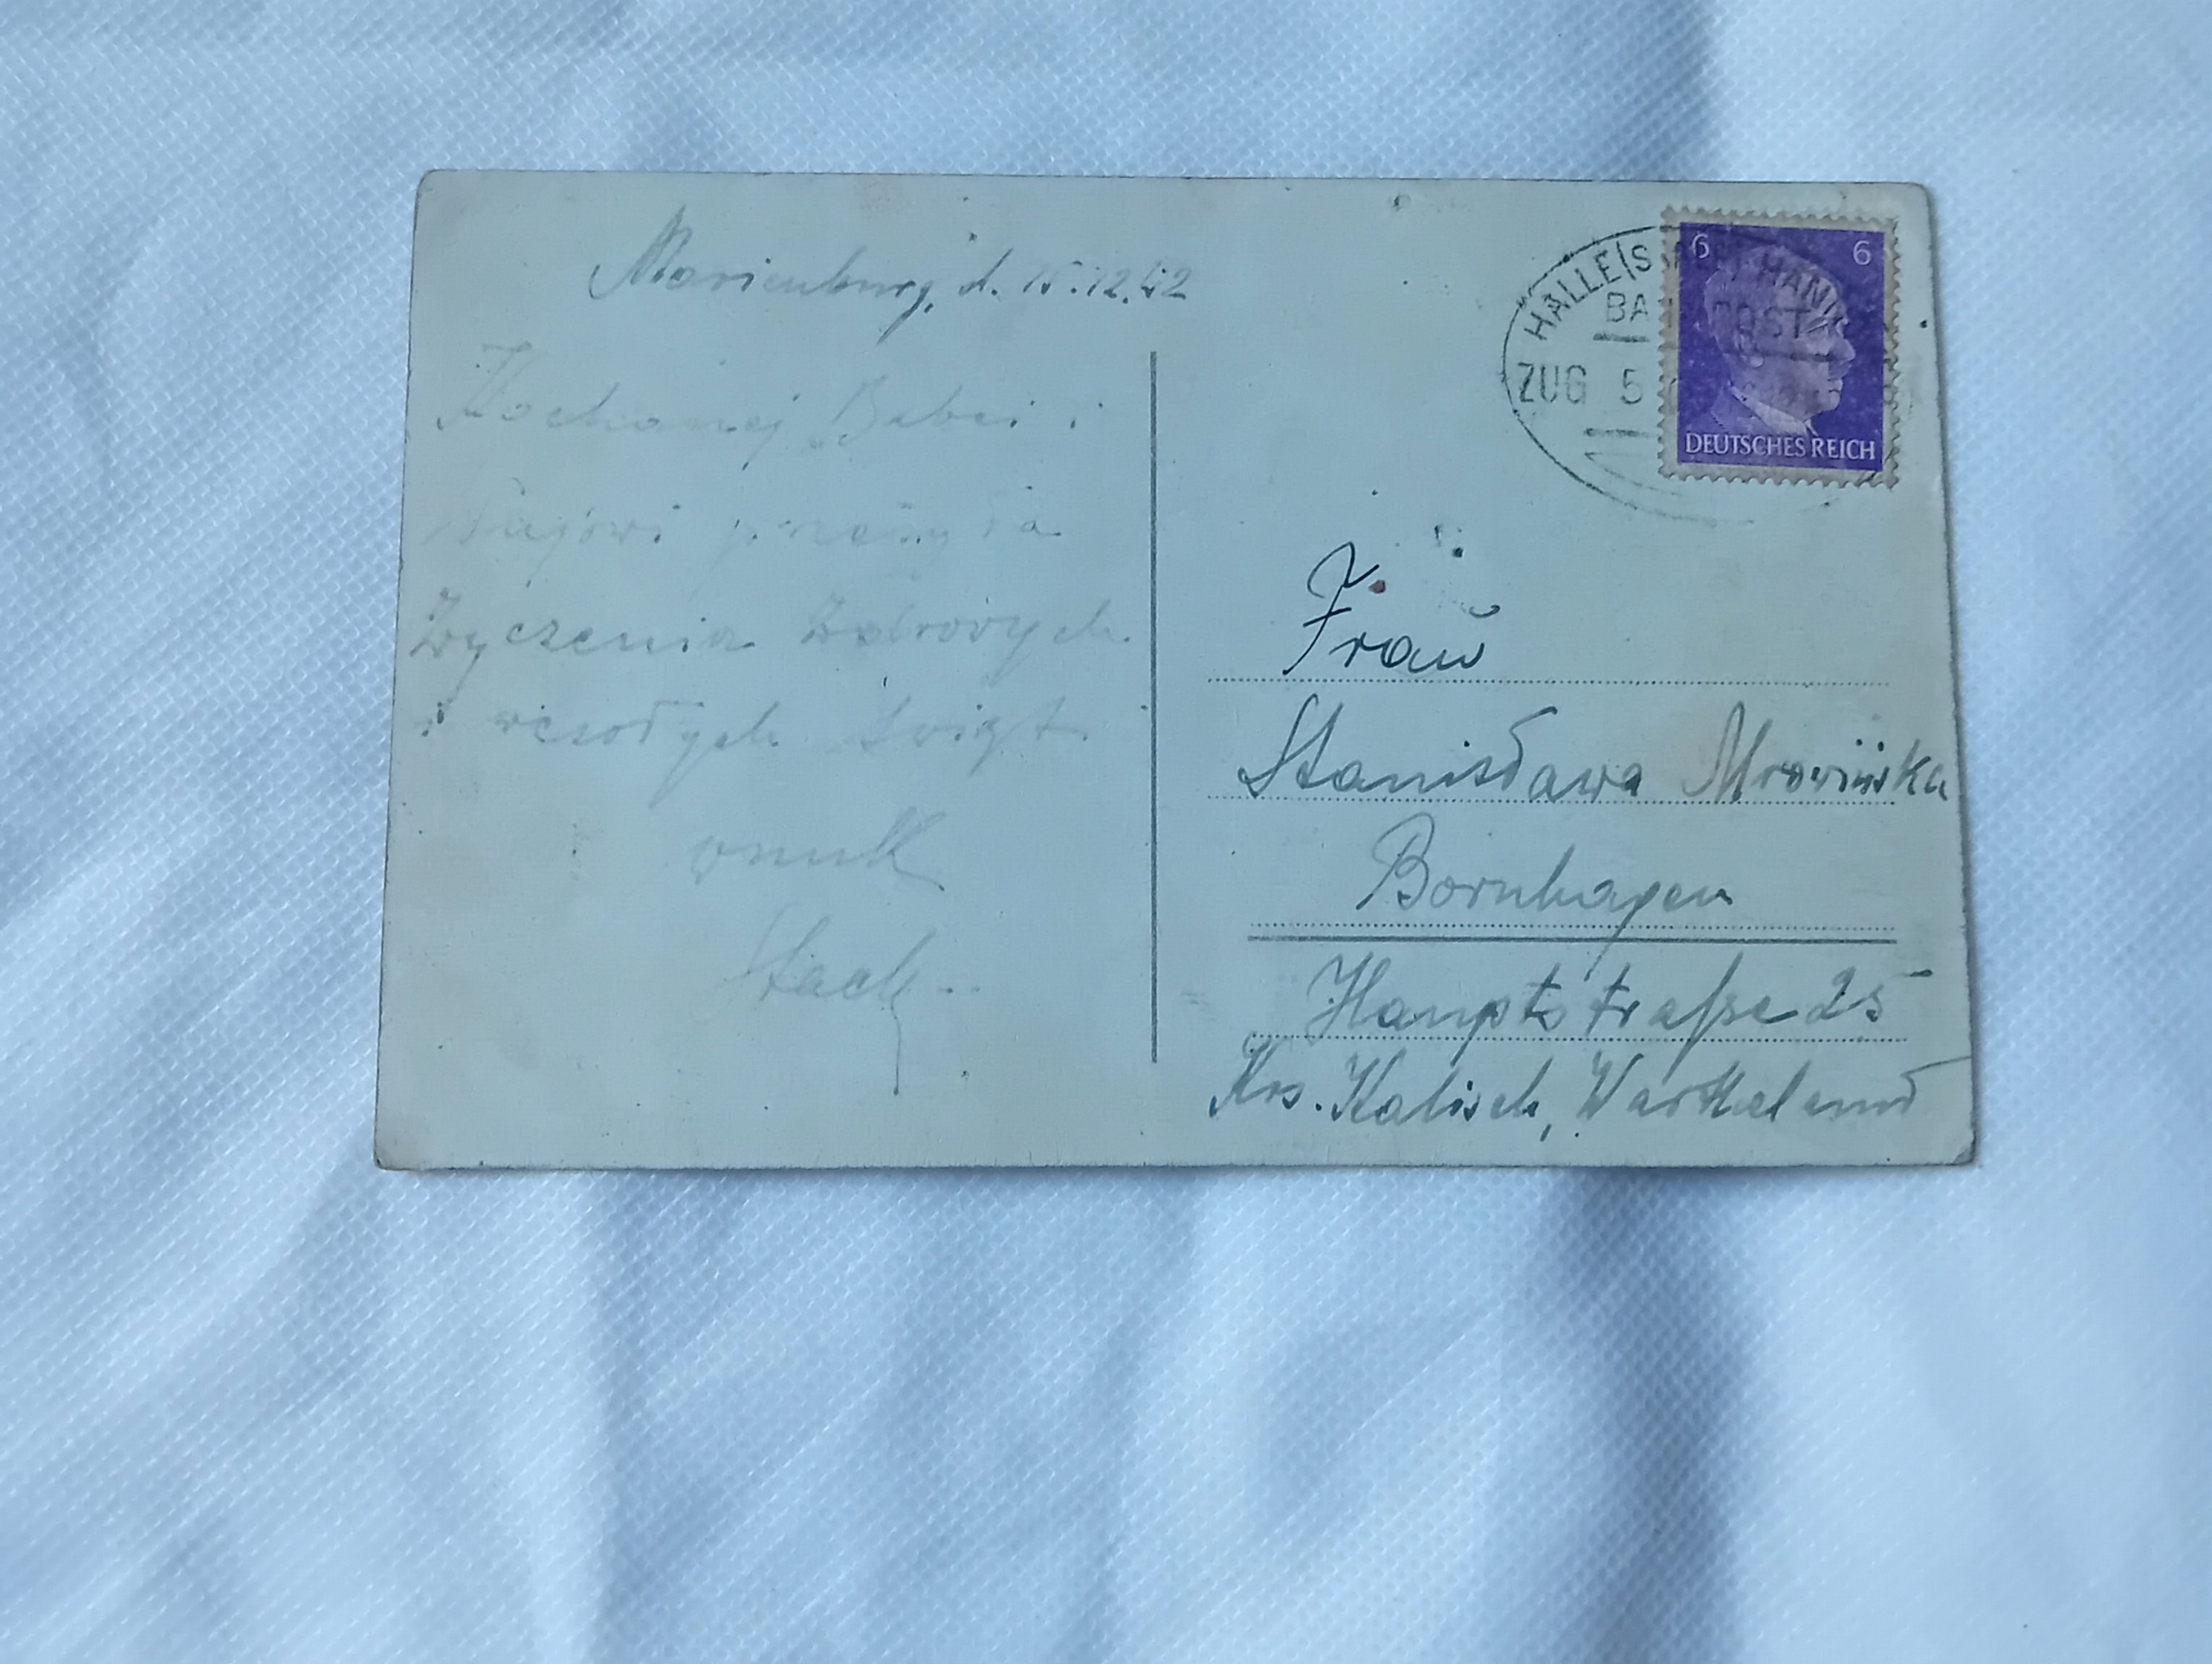 Marienburg, d. 15.12.42
Kochanej Babci i
przesyła
Życzenia Zdrowych
i wesołych Świąt
wnuk
Stach
HALLE(S
BA POST
ZUG 5
6 6
DEUTSCHES REICH
Frau
Stanisława Mrowińska
Bornhagen
Hauptstraße 25
Krs. Kalisch, Wartheland